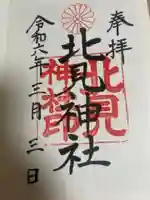 奉拝
北見神社
令和六年三月三日
北見
神社印